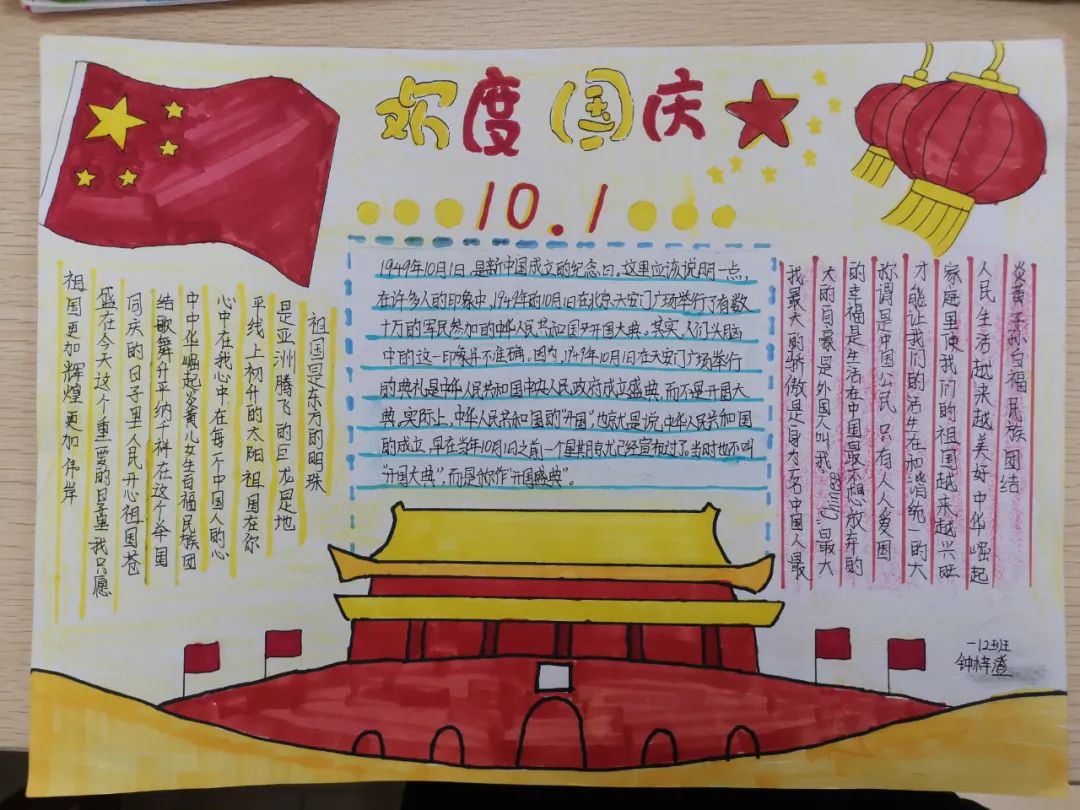 欢度国庆
10.1
1949年10月1日,是新中国成立的纪念日。这里应该说明一点,
在许多人的印象中,1949年的10月1日在北京天安门广场举行了有数
十万的军民参加的中华人民共和国开国大典。其实,人们头脑
中的这一印象并不准确。因为,1949年10月1日在天安门广场举行
的典礼是中华人民共和国中央人民政府成立盛典,而不是开国大
典。实际上,中华人民共和国的“开国”,也就是说中华人民共和国
的成立,早在当年10月1日之前一个星期就已经宣布过了。当时也不叫
“开国大典”,而是做作“开国盛典”。
祖国是东方的明珠
是亚洲腾飞的巨龙是地
平线上初升的太阳祖国在你
心中在我心中在每一个中国人的心
中中华崛起炎黄儿女生百福民族团
结歌舞升平纳千祥在这个举国
同庆的日子里人民开心祖国苍
盛在今天这个重要的日子里我只愿
祖国更加辉煌更加伟岸
炎黄子孙白福民族团结
人民生活越来越美好中华崛起
家庭里使我们的祖国越来越兴旺
才能让我们的活生在和谐统一的大
你谓是中国公民只有人人爱国
的幸福是生活在中国最不想放弃的
大的自豪是外国人叫我 最大
我最大的骄傲是身为名中国人最
一12班
钟梓澄